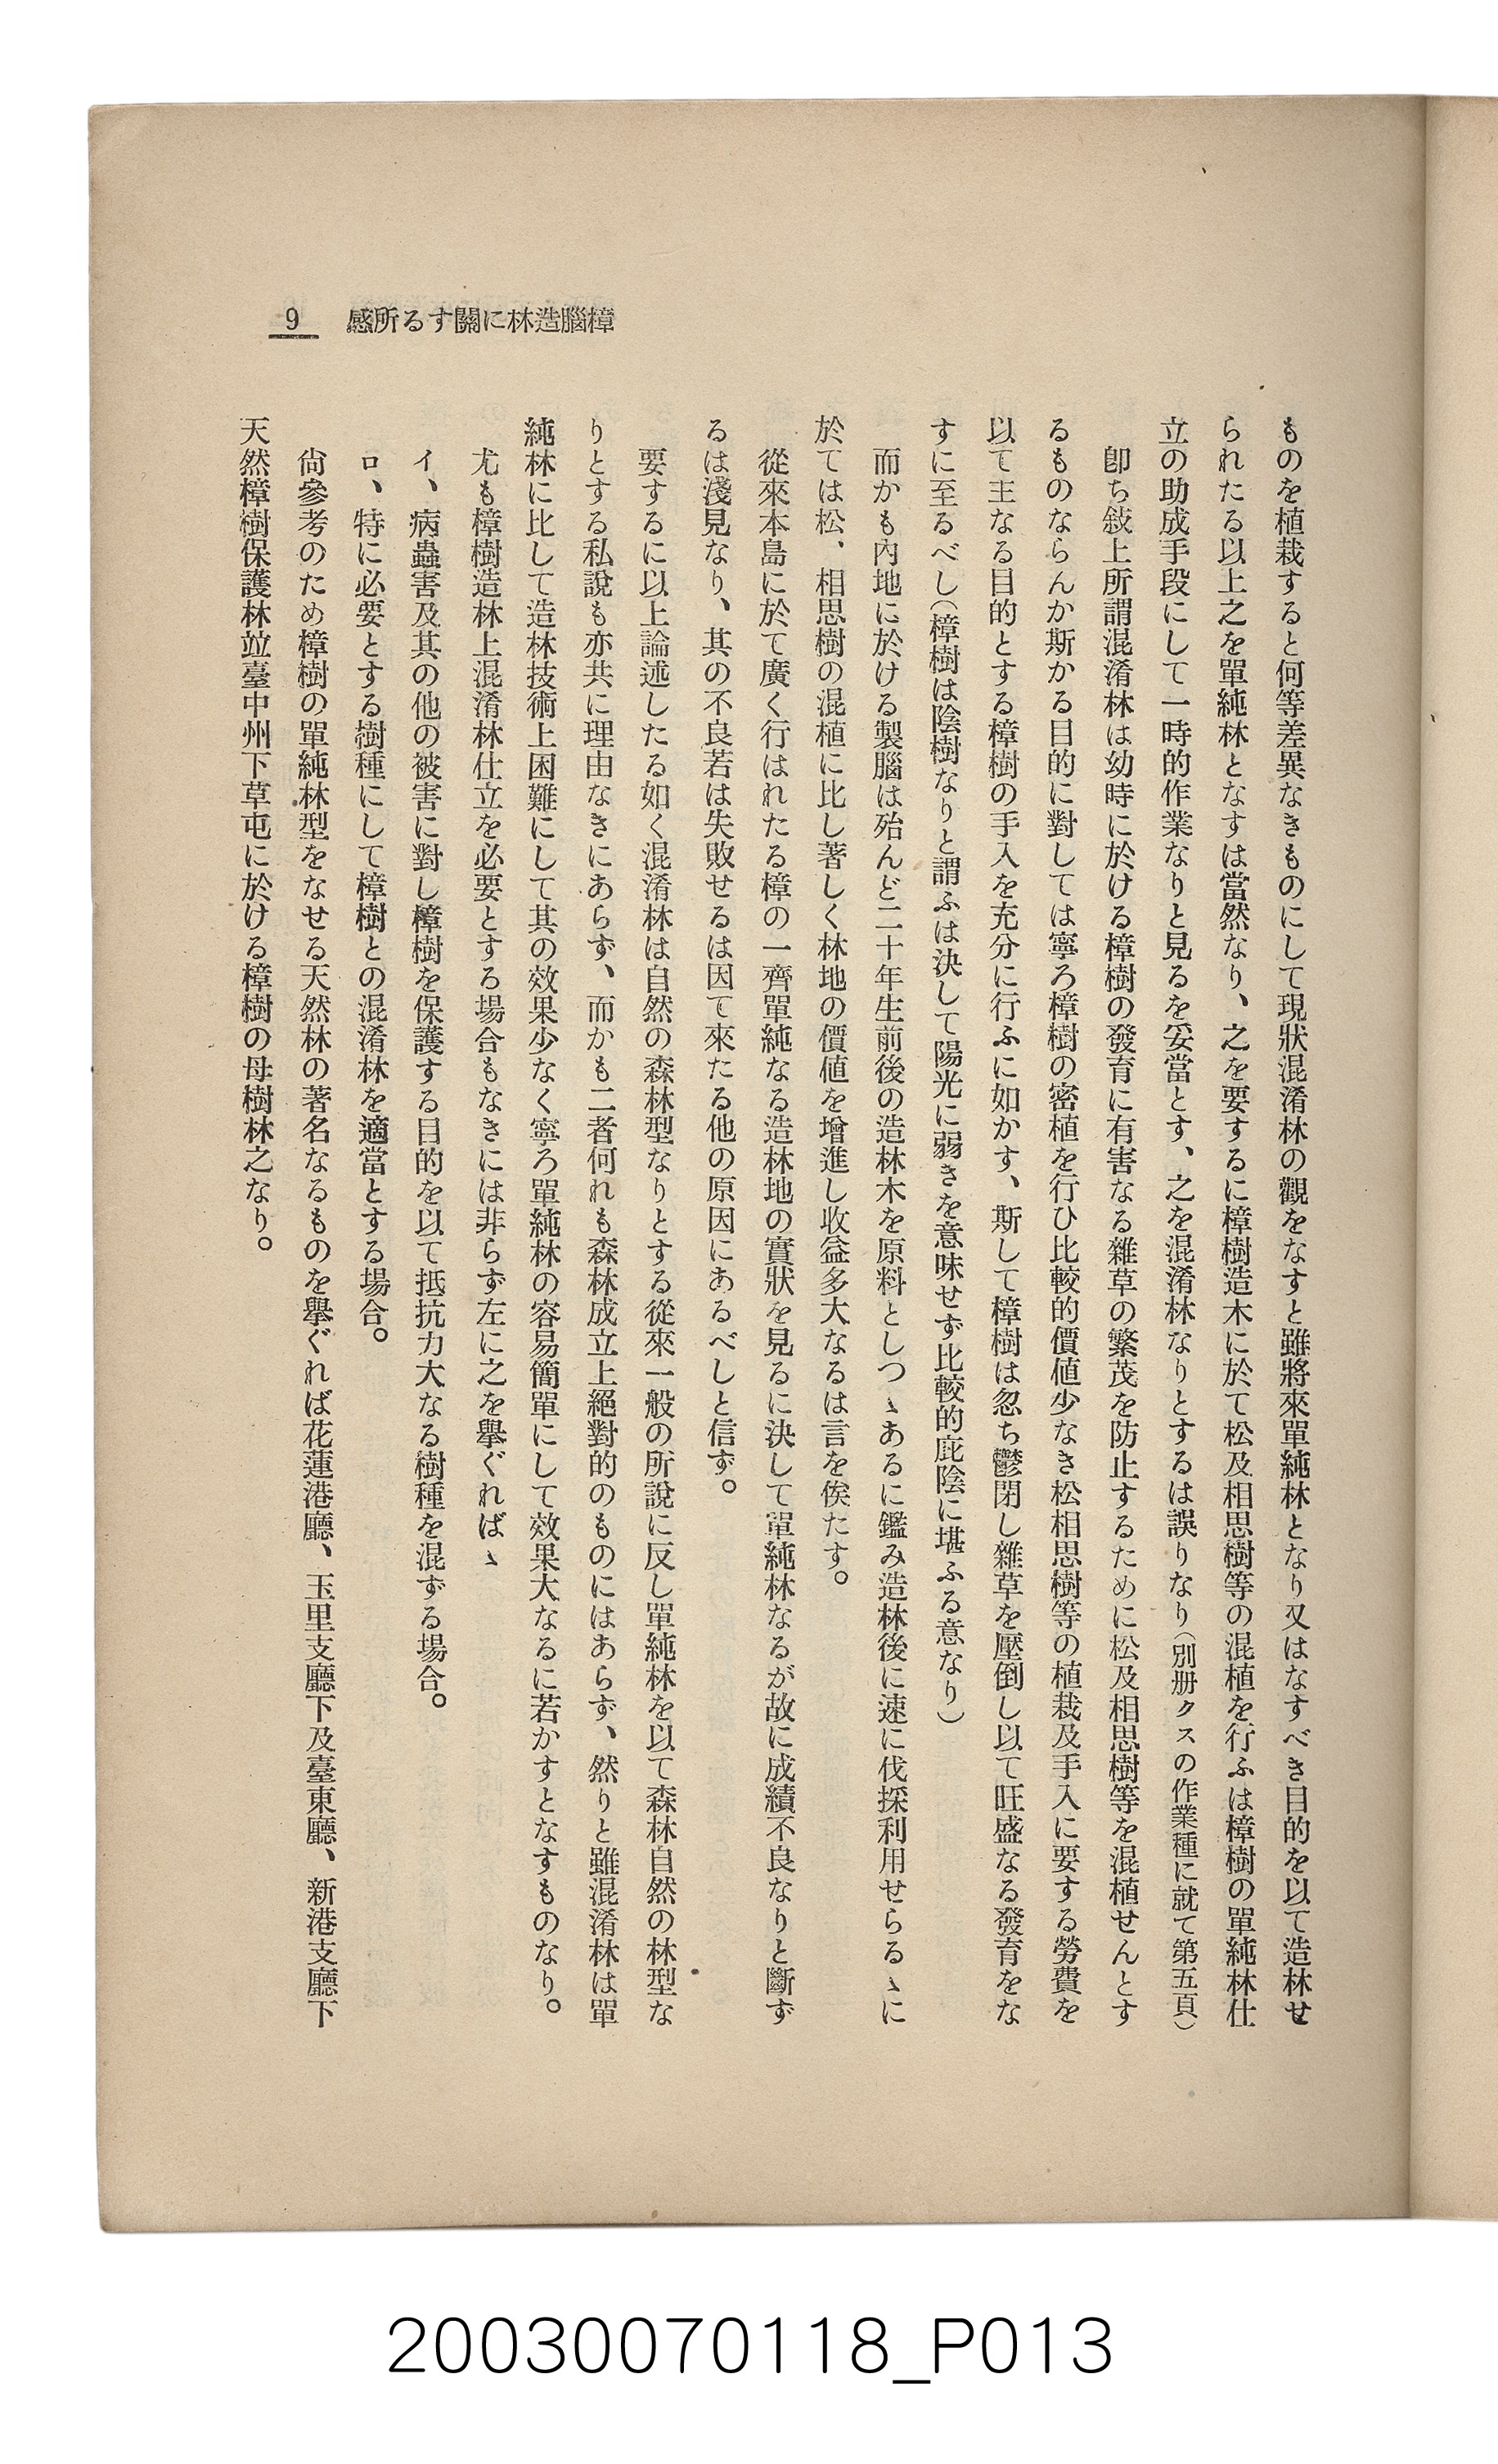 樟腦造林に關する所感
9
ものを植栽すると何等差異なきものにして現狀混淆林の觀をなすと雖將來單純林となり又はなすべき目的を以て造林せ
られたる以上之を單純林となすは當然なり、之を要するに樟樹造木に於て松及相思樹等の混植を行ふは樟樹の單純林仕
立の助成手段にして一時的作業なりと見るを妥當とす、之を混淆林なりとするは誤りなり（別册クスの作業種に就て第五頁）
卽ち敍上所謂混淆林は幼時に於ける樟樹の發育に有害なる雜草の繁茂を防止するために松及相思樹等を混植せんとす
るものならんか斯かる目的に對しては寧ろ樟樹の密植を行ひ比較的價値少なき松相思樹等の植栽及手入に要する勞費を
以て主なる目的とする樟樹の手入を充分に行ふに如かす、斯して樟樹は忽ち鬱閉し雜草を壓倒し以て旺盛なる發育をな
すに至るべし（樟樹は陰樹なりと謂ふは決して陽光に弱きを意味せず比較的庇陰に堪ふる意なり）
而かも內地に於ける製腦は殆んど二十年生前後の造林木を原料としつゝあるに鑑み造林後に速に伐採利用せらるゝに
於ては松、相思樹の混植に比し著しく林地の價値を增進し收益多大なるは言を俟たす。
從來本島に於て廣く行はれたる樟の一齊單純なる造林地の實狀を見るに決して單純林なるが故に成績不良なりと斷ず
るは淺見なり、其の不良若は失敗せるは因て來たる他の原因にあるべしと信ず。
要するに以上論述したる如く混淆林は自然の森林型なりとする從來一般の所說に反し單純林を以て森林自然の林型な
りとする私說も亦共に理由なきにあらず、而かも二者何れも森林成立上絕對的のものにはあらず、然りと雖混淆林は單
純林に比して造林技術上困難にして其の效果少なく寧ろ單純林の容易簡單にして效果大なるに若かすとなすものなり。
尤も樟樹造林上混淆林仕立を必要とする場合もなきには非らず左に之を擧ぐればゝ
イ、病蟲害及其の他の被害に對し樟樹を保護する目的を以て抵抗力大なる樹種を混ずる場合。
ロ、特に必要とする樹種にして樟樹との混淆林を適當とする場合。
尙參考のため樟樹の單純林型をなせる天然林の著名なるものを擧ぐれば花蓮港廳、玉里支廳下及臺東廳、新港支廳下
天然樟樹保護林竝臺中州下草屯に於ける樟樹の母樹林之なり。
20030070118_P013